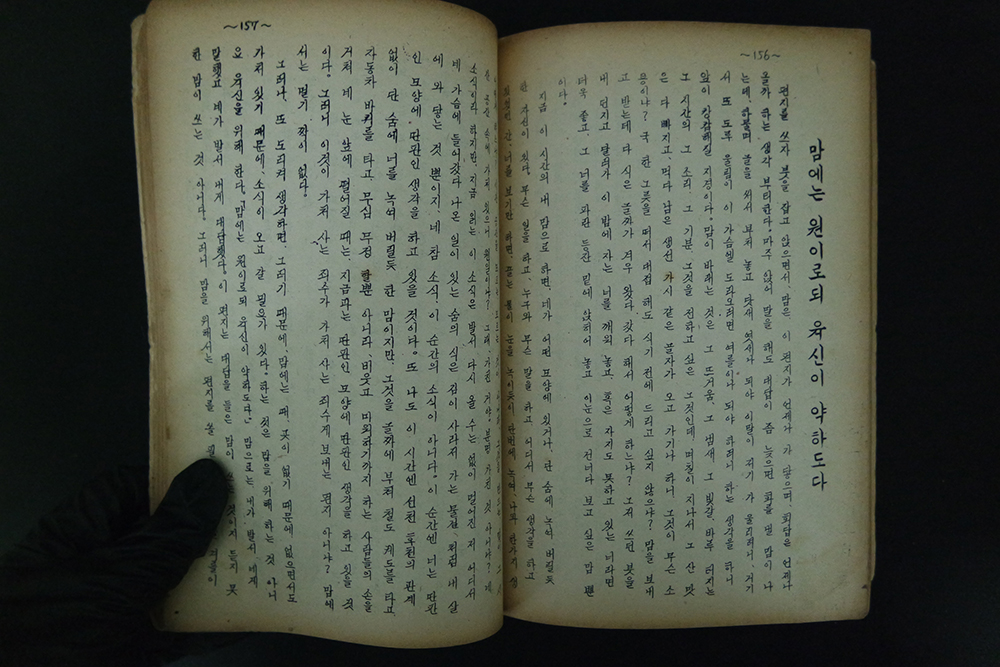 ~156~
맘에는 원이로되 육신이 약하도다
편지를 쓰자 붓을 잡고 앉으면서, 맘은 이 편지가 언제나 가 닿으며 회답은 언제나
올까 하는 생각 부터한다. 마주 앉어 말을 해도 대답이 좀 늦으면 화를 낼 맘이 나
는데, 하물며 글을 써서 부쳐 놓고 닷새 엿새나 되야 이말이 저기 가 울리려니, 거기
서 또 도루 울림이 이 가슴엘 도라오려면 여를이나 되야 하려니 하는 생각을 하니
앞이 캄캄해질 지경이다. 맘이 바래는 것은 그 뜨거움, 그 냄새, 그 빛갈 바루 떠지는
그 시간의 그 소리, 그 기분 그것을 전하고 싶은 그것인데 며칠이 지나서 그 산 맛
은 다 빠지고, 먹다 남은 생선 가시 같은 글자가 오고 가기나 하니 그것이 무슨 소
용이냐? 국 한 그릇을 떠서 대접 해도 식기 전에 드리고 싶지 않으냐? 맘을 보내
고 받는데 다 식은 글까가 겨우 왔다 갔다 해서 어떻게 하느냐? 그저 쓰던 붓을
내 던지고 달려가 이 밤에 자는 너를 깨워 놓고, 혹은 자지도 못하고 있는 너라면
더욱 좋고 그 너를 파란 등잔 밑에 앉혀어 놓고 이눈으로 건너다 보고 싶은 맘 뿐
이다.
지금 이 시간의 내 맘으로 하면, 네가 어떤 모양에 있거나, 단 숨에 녹여 버릴듯
한 자신이 있다. 무슨 일을 하고, 누구와 무슨 말을 하고 어디서 무슨 생각을 하고
있었던 간, 너를 보기만 하면, 끓는 불이 눈을 녹이듯이 단번에 녹여, 나와 한가지 생
~157~
소식이라 하지만, 지금 읽는 이 소식은 발서 다시 올 수는 없이 멀어진 저 어디서
네 가슴에 들어갔다 나온 일이 있는 숨의 식은 김이 사라져 가는 물껼처럼 내 살
에 와 닿는 것 뿐이지, 네 참 소식, 이 순간의 소식이 아니다. 이 순간엔 너는 딴판
인 모양에, 딴판인 생각을 하고 있을 것이다. 또 나도 이 시간엔 선천 후천의 관계
없이 단 숨에 너를 녹여 버릴듯 한 맘이지만, 그것을 글까에 부쳐 철도 궤도를 타고
자동차 바퀴를 타고, 무심 무정 할뿐 아니라, 비웃고 미워하기까지 하는 사람들의 손을
거쳐 네 눈 앞에 펼어질 때는, 지금과는 딴판인 모양에 딴판인 생각을 하고 있을 것
이다. 그러니 이것이 가쳐 사는 죄수가 가쳐 사는 죄수게 보내는 편지 아니냐? 맘에
서는 멀기 까이 없다.
그러나, 또 도리켜 생각하면, 그러기 때문에, 맘에는 때, 곳이 없기 때문에 없으면서도
가쳐 있기 때문에, 소식이 오고 갈 필요가 있다. 하는 것은 맘을 위해 하는 것 아니
요 육신을 위해 한다. 『맘에는 원이로되 육신이 약하도다.』 맘으로는 내가 발서 네게
말했고 네가 발서 내게 대답했다. 이 편지는 대답을 들은 맘이 것이지 듣지 못
한 맘이 쓰는 것 아니다. 그러니 맘을 위해서는 편지를 쓸 저들이